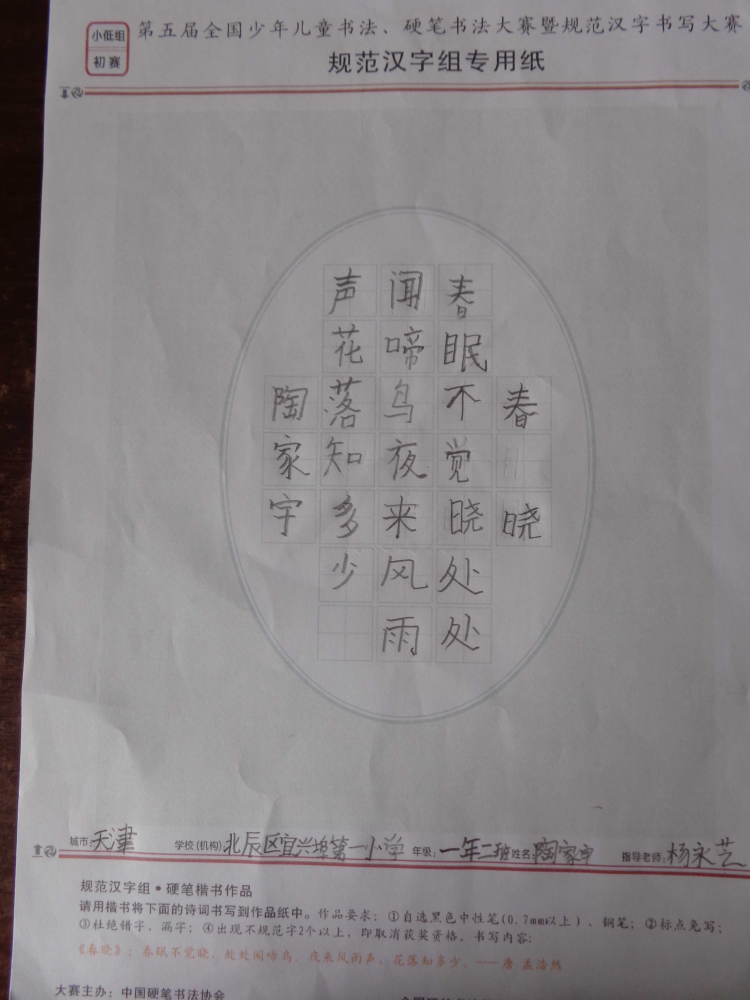 小低组
初赛
第五届全国少年儿童书法、硬笔书法大赛暨规范汉字书写大赛
规范汉字组专用纸
春晓
春眠不觉晓处处
闻啼鸟夜来风雨
声花落知多少
陶家宇
城市:天津 学校(机构)北辰区宜兴埠第一小学 年级:一年二班 姓名:陶家宇 指导老师:杨永艺
规范汉字组•硬笔楷书作品
请用楷书将下面的诗词书写到作品纸中。作品要求:①自选黑色中性笔(0.7mm以上)、钢笔;②标点免写;
③杜绝错字、漏字;④出现不规范字2个以上,即取消获奖资格。书写内容:
《春晓》:春眠不觉晓,处处闻啼鸟。夜来风雨声,花落知多少。——唐 孟浩然
大赛主办:中国硬笔书法协会